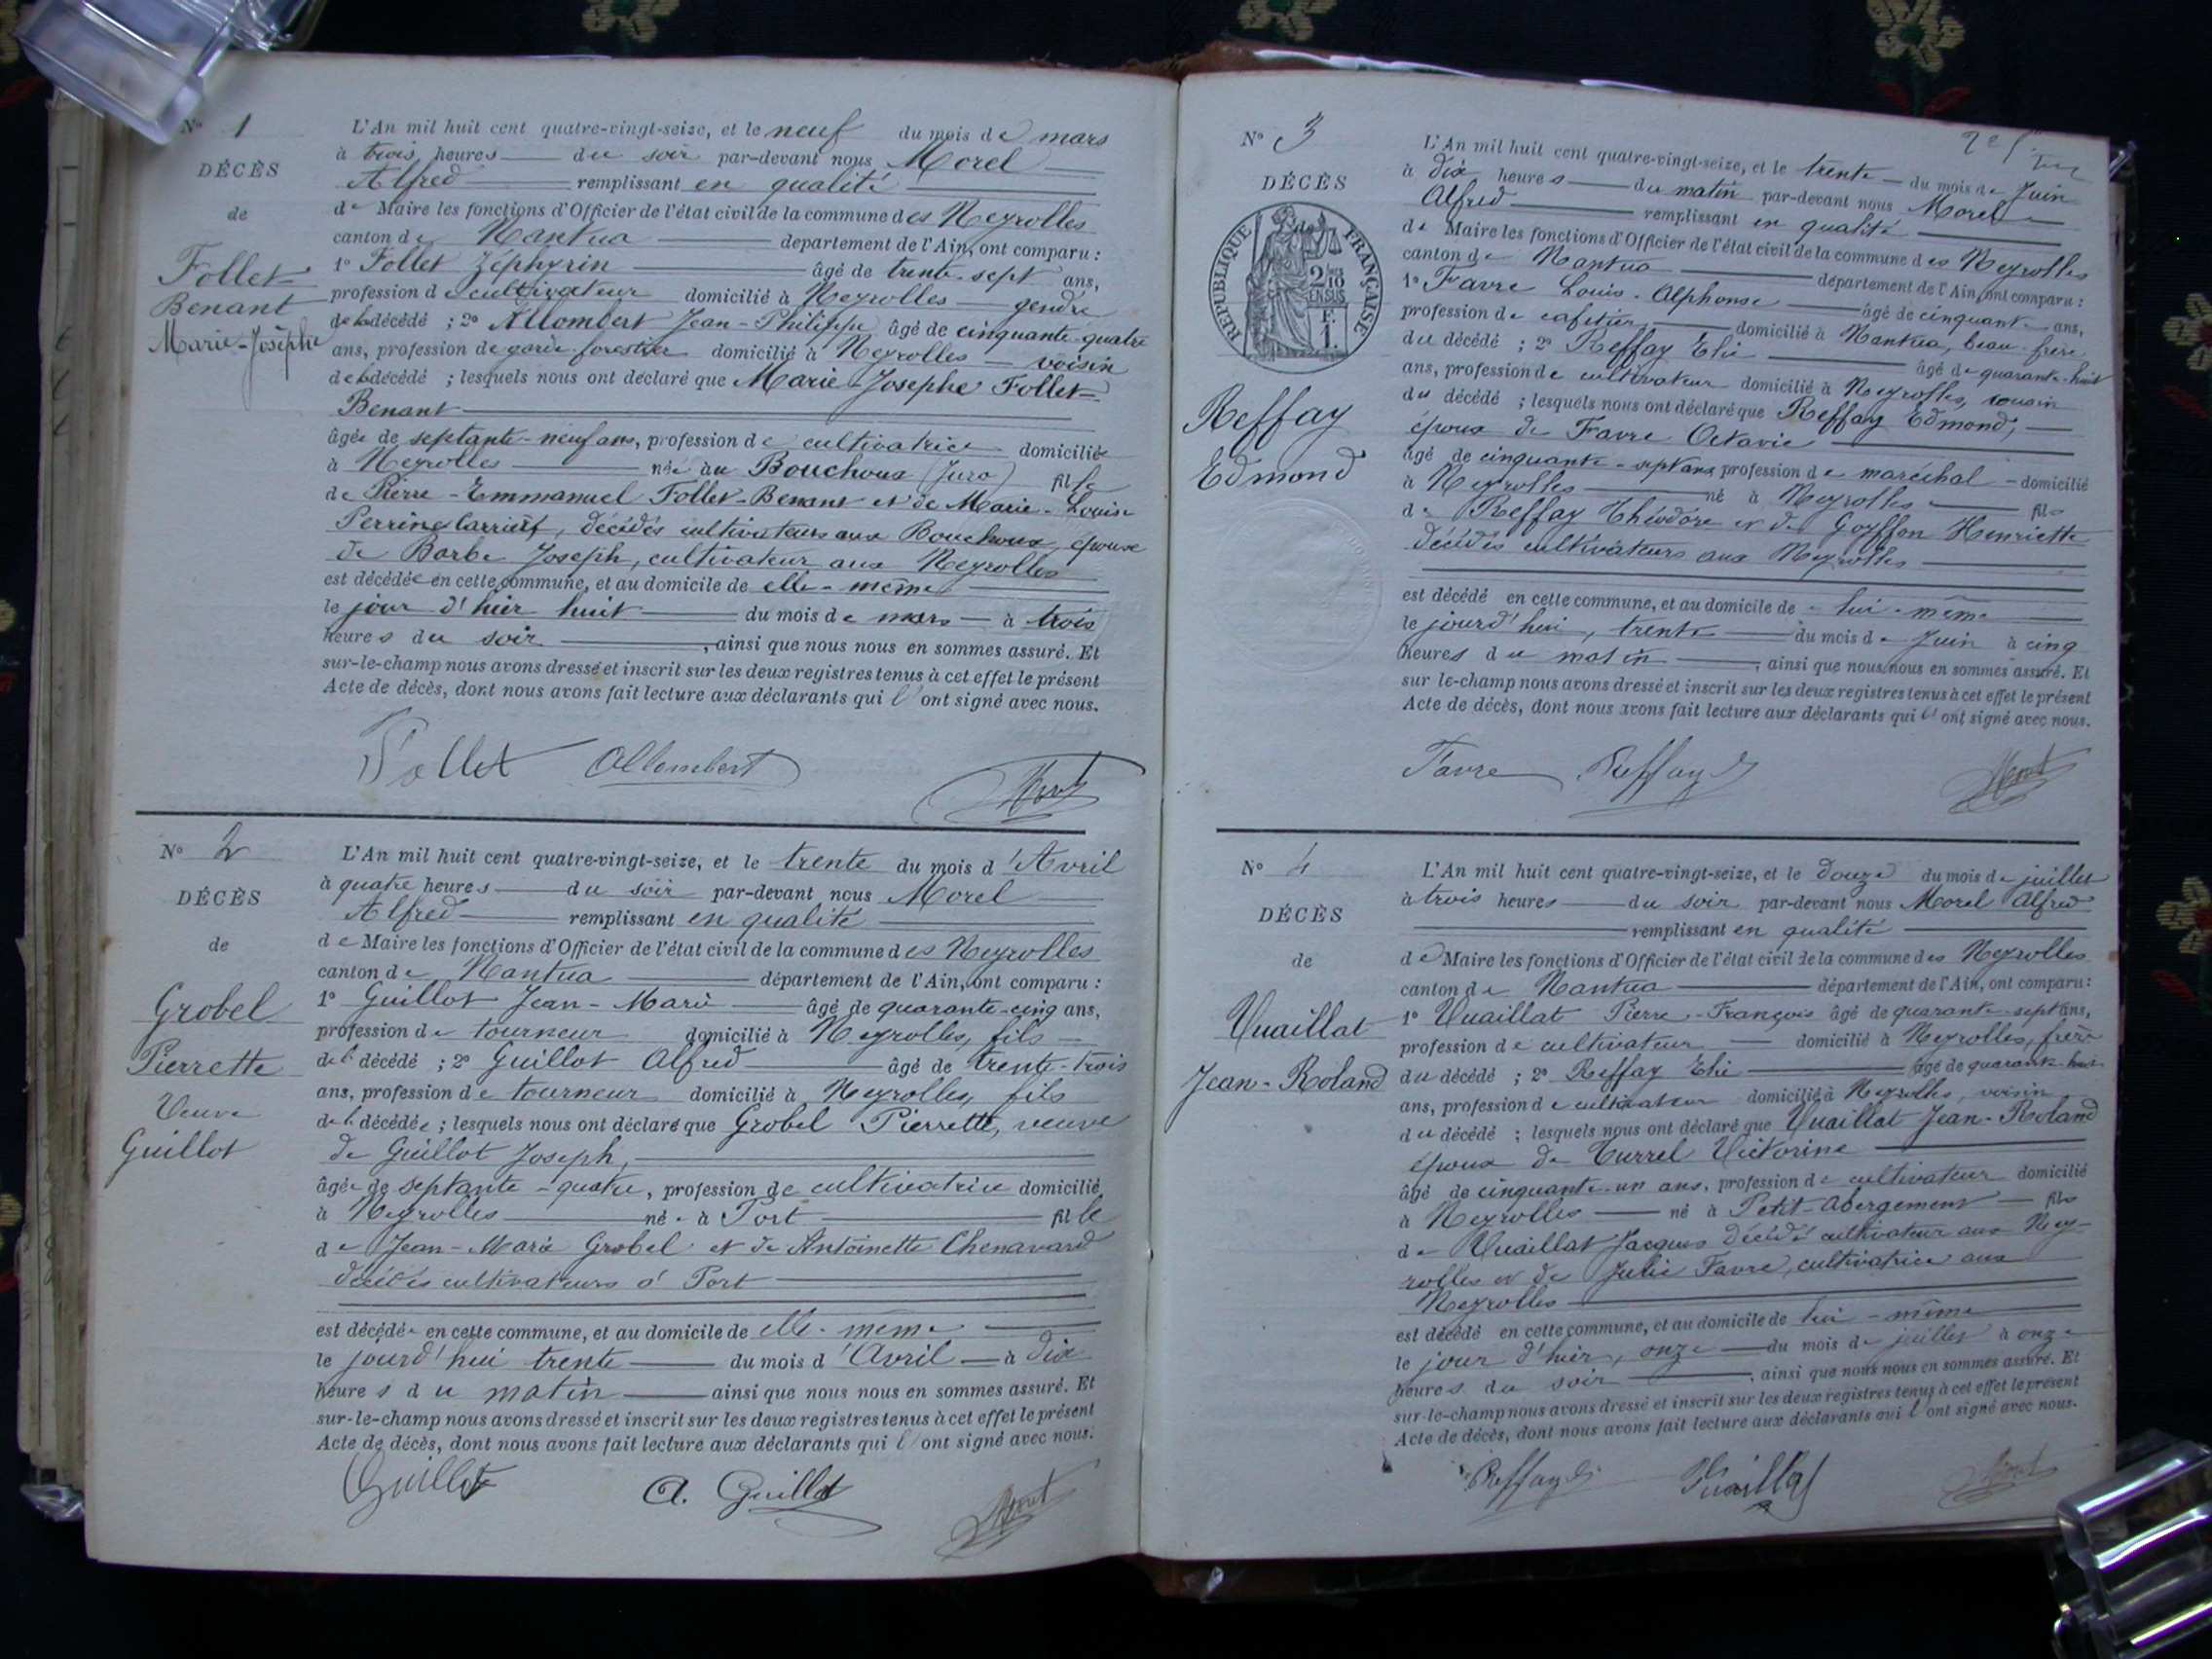 Nº 1
DÉCÈS
de
Follet
Benant
Marie-Josèphe
L'An mil huit cent quatre-vingt-seize, et le neuf du mois de mars
à trois heures du soir par-devant nous Morel
Alfred remplissant en qualité
de Maire les fonctions d'Officier de l'état civil de la commune des Neyrolles
canton de Nantua département de l'Ain, ont comparu :
1º Follet Zéphyrin âgé de trente-sept ans,
profession de cultivateur domicilié à Neyrolles gendre
de la décédé ; 2º Allombert Jean-Philippe âgé de cinquante-quatre
ans, profession de garde-forestier domicilié à Neyrolles voisin
de la décédé ; lesquels nous ont déclaré que Marie-Josephe Follet-
Benant
âgée de septante-neuf ans, profession de cultivatrice domiciliée
à Neyrolles née au Bouchoux (Jura) fille
de Pierre-Emmanuel Follet-Benant et de Marie-Louise
Perrine, décédés cultivateurs aux Bouchoux, épouse
de Barbe Joseph, cultivateur aux Neyrolles
est décédée en cette commune, et au domicile de elle-même
le jour d'hier huit du mois de mars à trois
heures du soir, ainsi que nous nous en sommes assuré. Et
sur-le-champ nous avons dressé et inscrit sur les deux registres tenus à cet effet le présent
Acte de décès, dont nous avons fait lecture aux déclarants qui l'ont signé avec nous.
Follet Allombert
Nº 2
DÉCÈS
de
Grobel
Pierrette
Veuve
Guillot
L'An mil huit cent quatre-vingt-seize, et le trente du mois d'Avril
à quatre heures du soir par-devant nous Morel
Alfred remplissant en qualité
de Maire les fonctions d'Officier de l'état civil de la commune des Neyrolles
canton de Nantua département de l'Ain, ont comparu :
1º Guillot Jean-Marie âgé de quarante-cinq ans,
profession de tourneur domicilié à Neyrolles, fils
de la décédé ; 2º Guillot Alfred âgé de trente-trois
ans, profession de tourneur domicilié à Neyrolles, fils
de la décédée ; lesquels nous ont déclaré que Grobel Pierrette, veuve
de Guillot Joseph,
âgée de septante-quatre, profession de cultivatrice domicilié
à Neyrolles née à Port fille
de Jean-Marie Grobel et de Antoinette Chenavard
décédés cultivateurs à Port
est décédée en cette commune, et au domicile de elle-même
le jourd'hui trente du mois d'Avril à dix
heures du matin ainsi que nous nous en sommes assuré. Et
sur-le-champ nous avons dressé et inscrit sur les deux registres tenus à cet effet le présent
Acte de décès, dont nous avons fait lecture aux déclarants qui l'ont signé avec nous.
Guillot A. Guillot
Nº 3
DÉCÈS
de
RÉPUBLIQUE FRANÇAISE
2/10 EN SUS
F.
1.
Reffay
Edmond
L'An mil huit cent quatre-vingt-seize, et le trente du mois de Juin
à dix heures du matin par-devant nous Morel
Alfred remplissant en qualité
de Maire les fonctions d'Officier de l'état civil de la commune des Neyrolles
canton de Nantua département de l'Ain, ont comparu :
1º Favre Louis-Alphonse âgé de cinquante ans,
profession de cafetier domicilié à Nantua, beau-frère
du décédé ; 2º Reffay Elie âgé de quarante-huit
ans, profession de cultivateur domicilié à Neyrolles, cousin
du décédé ; lesquels nous ont déclaré que Reffay Edmond,
époux de Favre Octavie
âgé de cinquante-sept ans, profession de maréchal domicilié
à Neyrolles né à Neyrolles fils
de Reffay Théodore et de Goyffon Henriette
décédés cultivateurs aux Neyrolles
est décédé en cette commune, et au domicile de lui-même
le jourd'hui, trente du mois de Juin à cinq
heures du matin, ainsi que nous nous en sommes assuré. Et
sur le-champ nous avons dressé et inscrit sur les deux registres tenus à cet effet le présent
Acte de décès, dont nous avons fait lecture aux déclarants qui l'ont signé avec nous.
Favre Reffay
Nº 4
DÉCÈS
de
Vuaillat
Jean-Roland
L'An mil huit cent quatre-vingt-seize, et le douze du mois de juillet
à trois heures du soir par-devant nous Morel Alfred
remplissant en qualité
de Maire les fonctions d'Officier de l'état civil de la commune des Neyrolles
canton de Nantua département de l'Ain, ont comparu :
1º Vuaillat Pierre-François âgé de quarante-sept ans,
profession de cultivateur domicilié à Neyrolles, frère
du décédé ; 2º Reffay Elie âgé de quarante-huit
ans, profession de cultivateur domicilié à Neyrolles, voisin
du décédé ; lesquels nous ont déclaré que Vuaillat Jean-Roland
époux de Turrel Victorine
âgé de cinquante-un ans, profession de cultivateur domicilié
à Neyrolles né à Petit-Abergement fils
de Vuaillat Jacques décédé cultivateur aux Ney-
rolles et de Julie Favre, cultivatrice aux
Neyrolles
est décédé en cette commune, et au domicile de lui-même
le jour d'hier, onze du mois de juillet à onze
heures du soir, ainsi que nous nous en sommes assuré. Et
sur-le-champ nous avons dressé et inscrit sur les deux registres tenus à cet effet le présent
Acte de décès, dont nous avons fait lecture aux déclarants qui l'ont signé avec nous.
Reffay Vuaillat